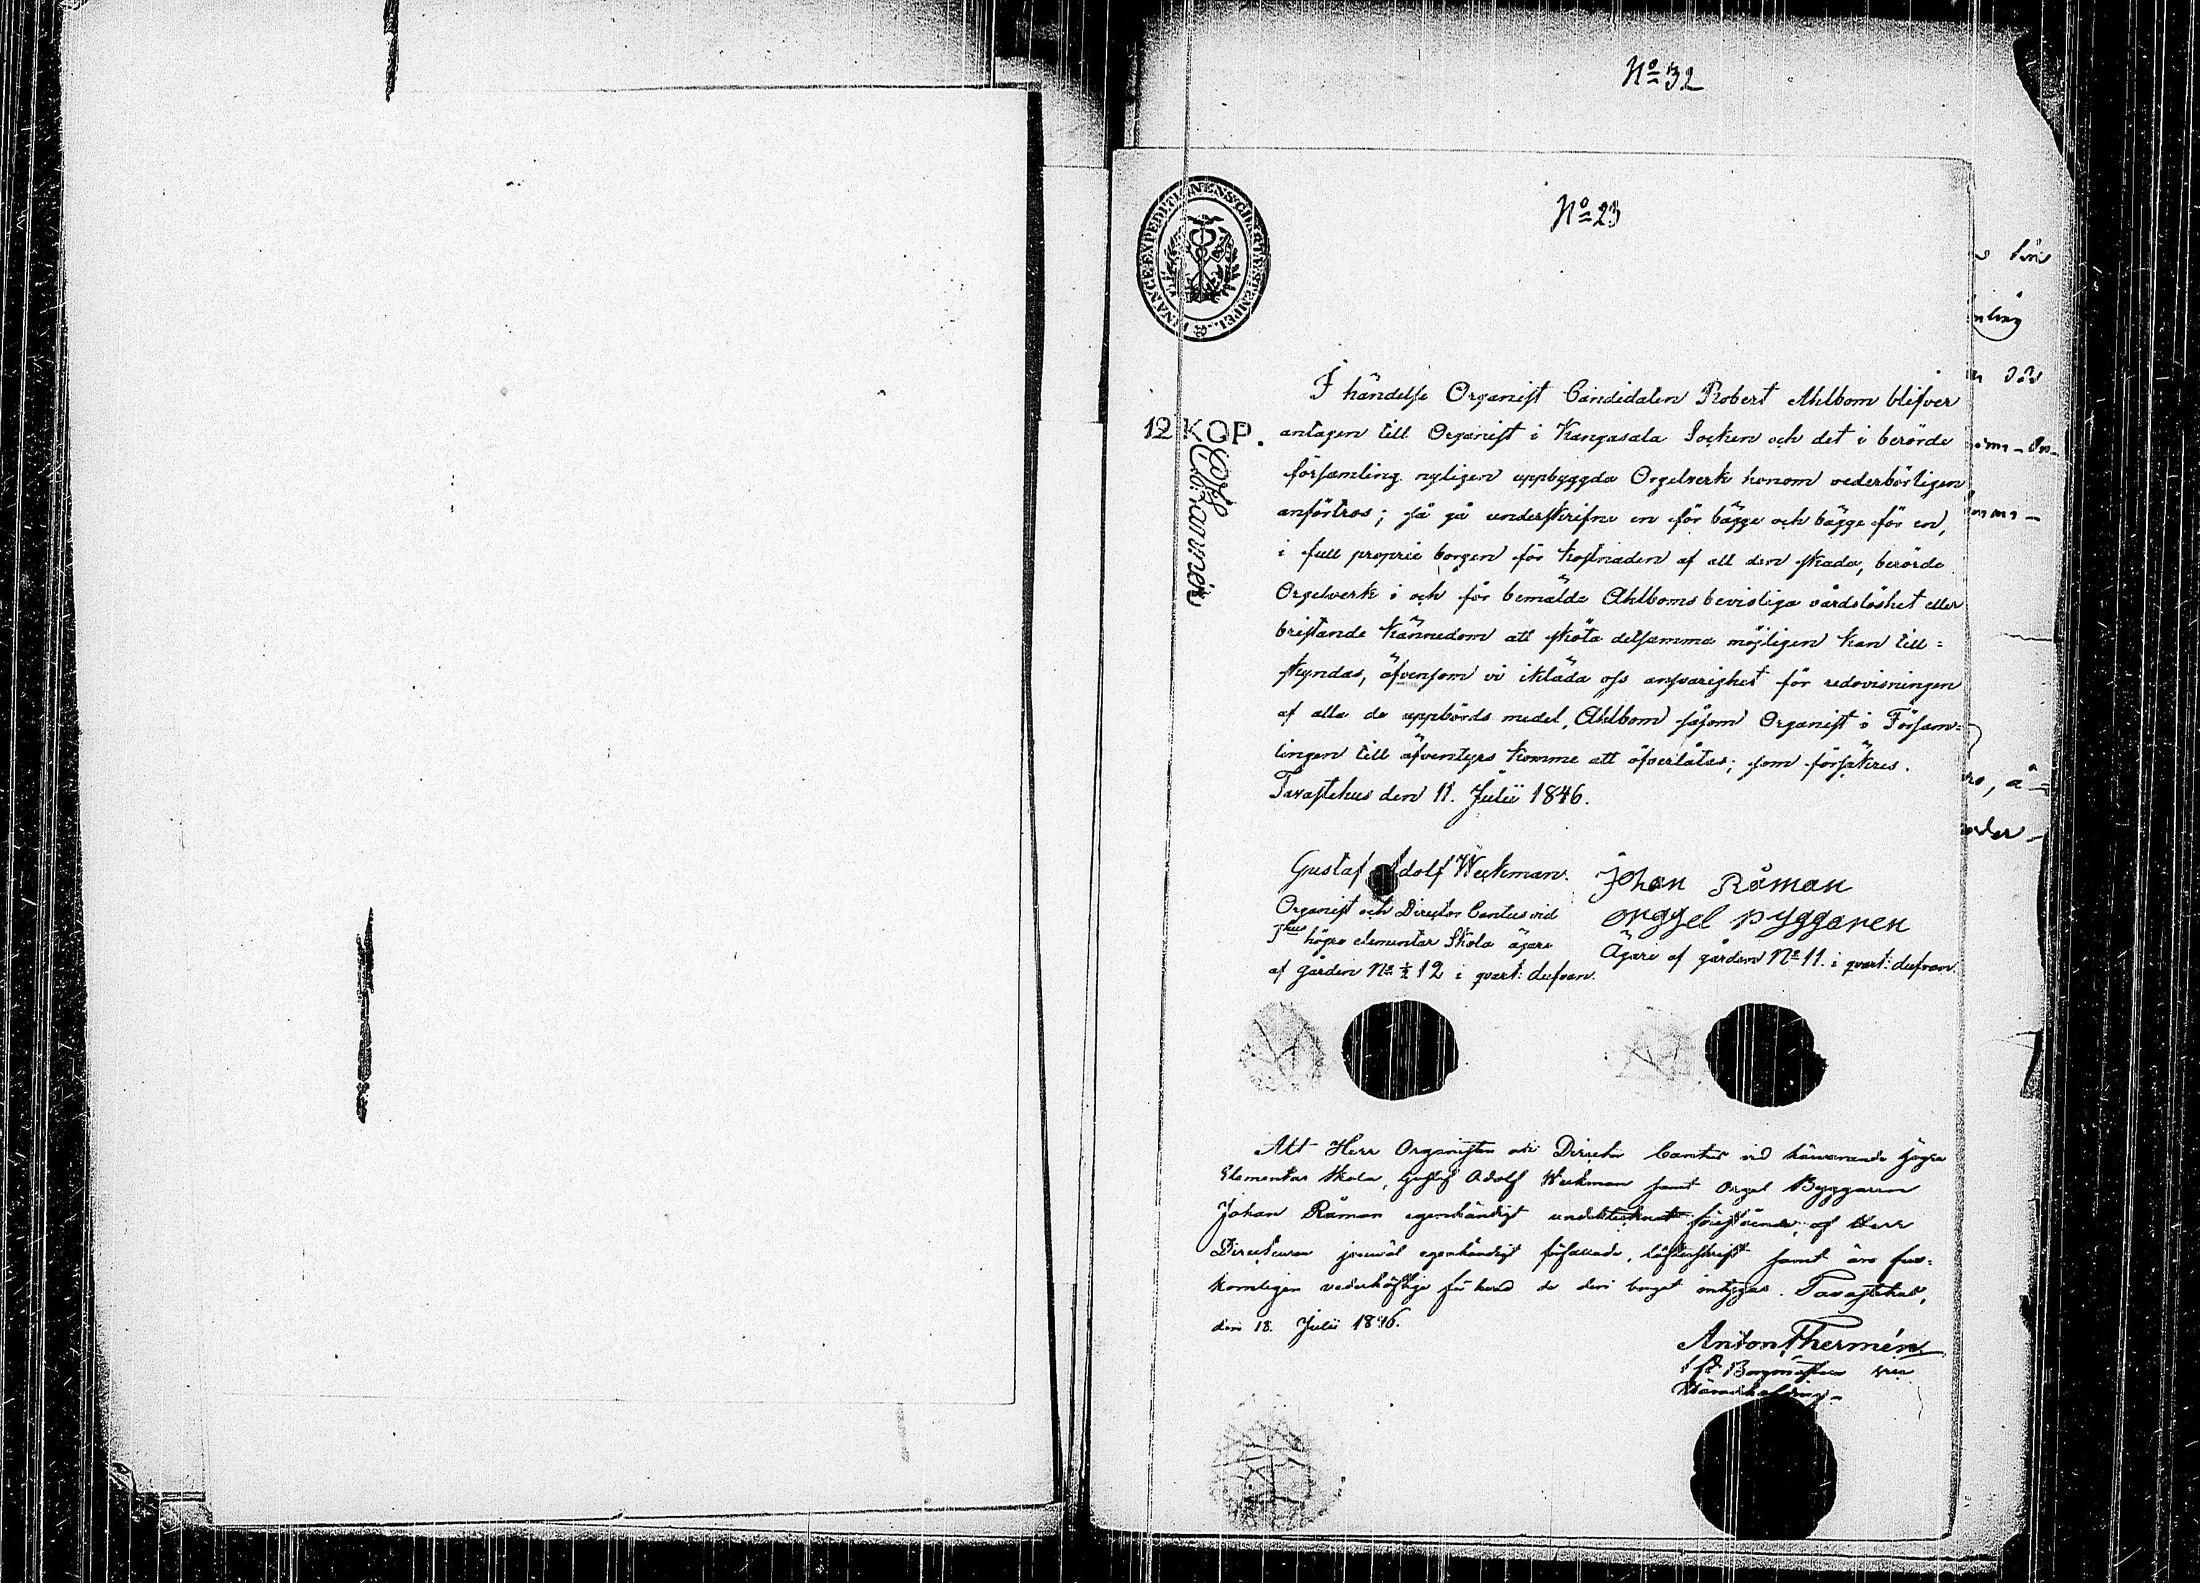 No 32
No 23
FINANCE EXPEDITIONENS CHARTÆ STEMPEL.
12 KOP.
I händelse Organist Candidaten Robert Ahlbom blifver
antagen till Organist i Kangasala Socken och det i berörde
församling nyligen uppbyggda Orgelverk honom vederbörligen
anförtros; så gå underskrifne en för bägge och bägge för en,
i full proprie borgen för kostnaden af all den skada, berörde
Orgelverk i och för bemälde Ahlboms bevisliga vårdslöshet eller
bristande kännedom att sköta detsamma möjligen kan till=
skyndas, äfvensom vi ikläda oss ansvarighet för redovisningen
af alla de uppbörds medel, Ahlbom såsom Organist i Försam=
lingen till äfventyrs komme att öfverlåtas; som försäkres.
Tavastehus den 11. Julii 1846.
Gustaf Adolf Weckman.
Organist och Director Cantus vid
Thus högre elementar Skola ägare
af gården No ½ 12 i qvart: dufvan.
Johan Råman
orggel pyggaren
Ägare af gården No 11. i qvart: dufvan.
Att Herr Organisten och Director Cantus vid härvarande högre
Elementar Skola, Gustaf Adolf Weckman samt Orgel Byggaren
Johan Råman egenhändigt undertecknat förestående, af Herr
Directeuren jemväl egenhändigt författade, löftesskrift samt äro full=
komligen vederhäftige för hvad de deri borgat intygas. Tavastehus,
den 18. Julii 1846.
Anton Thermén